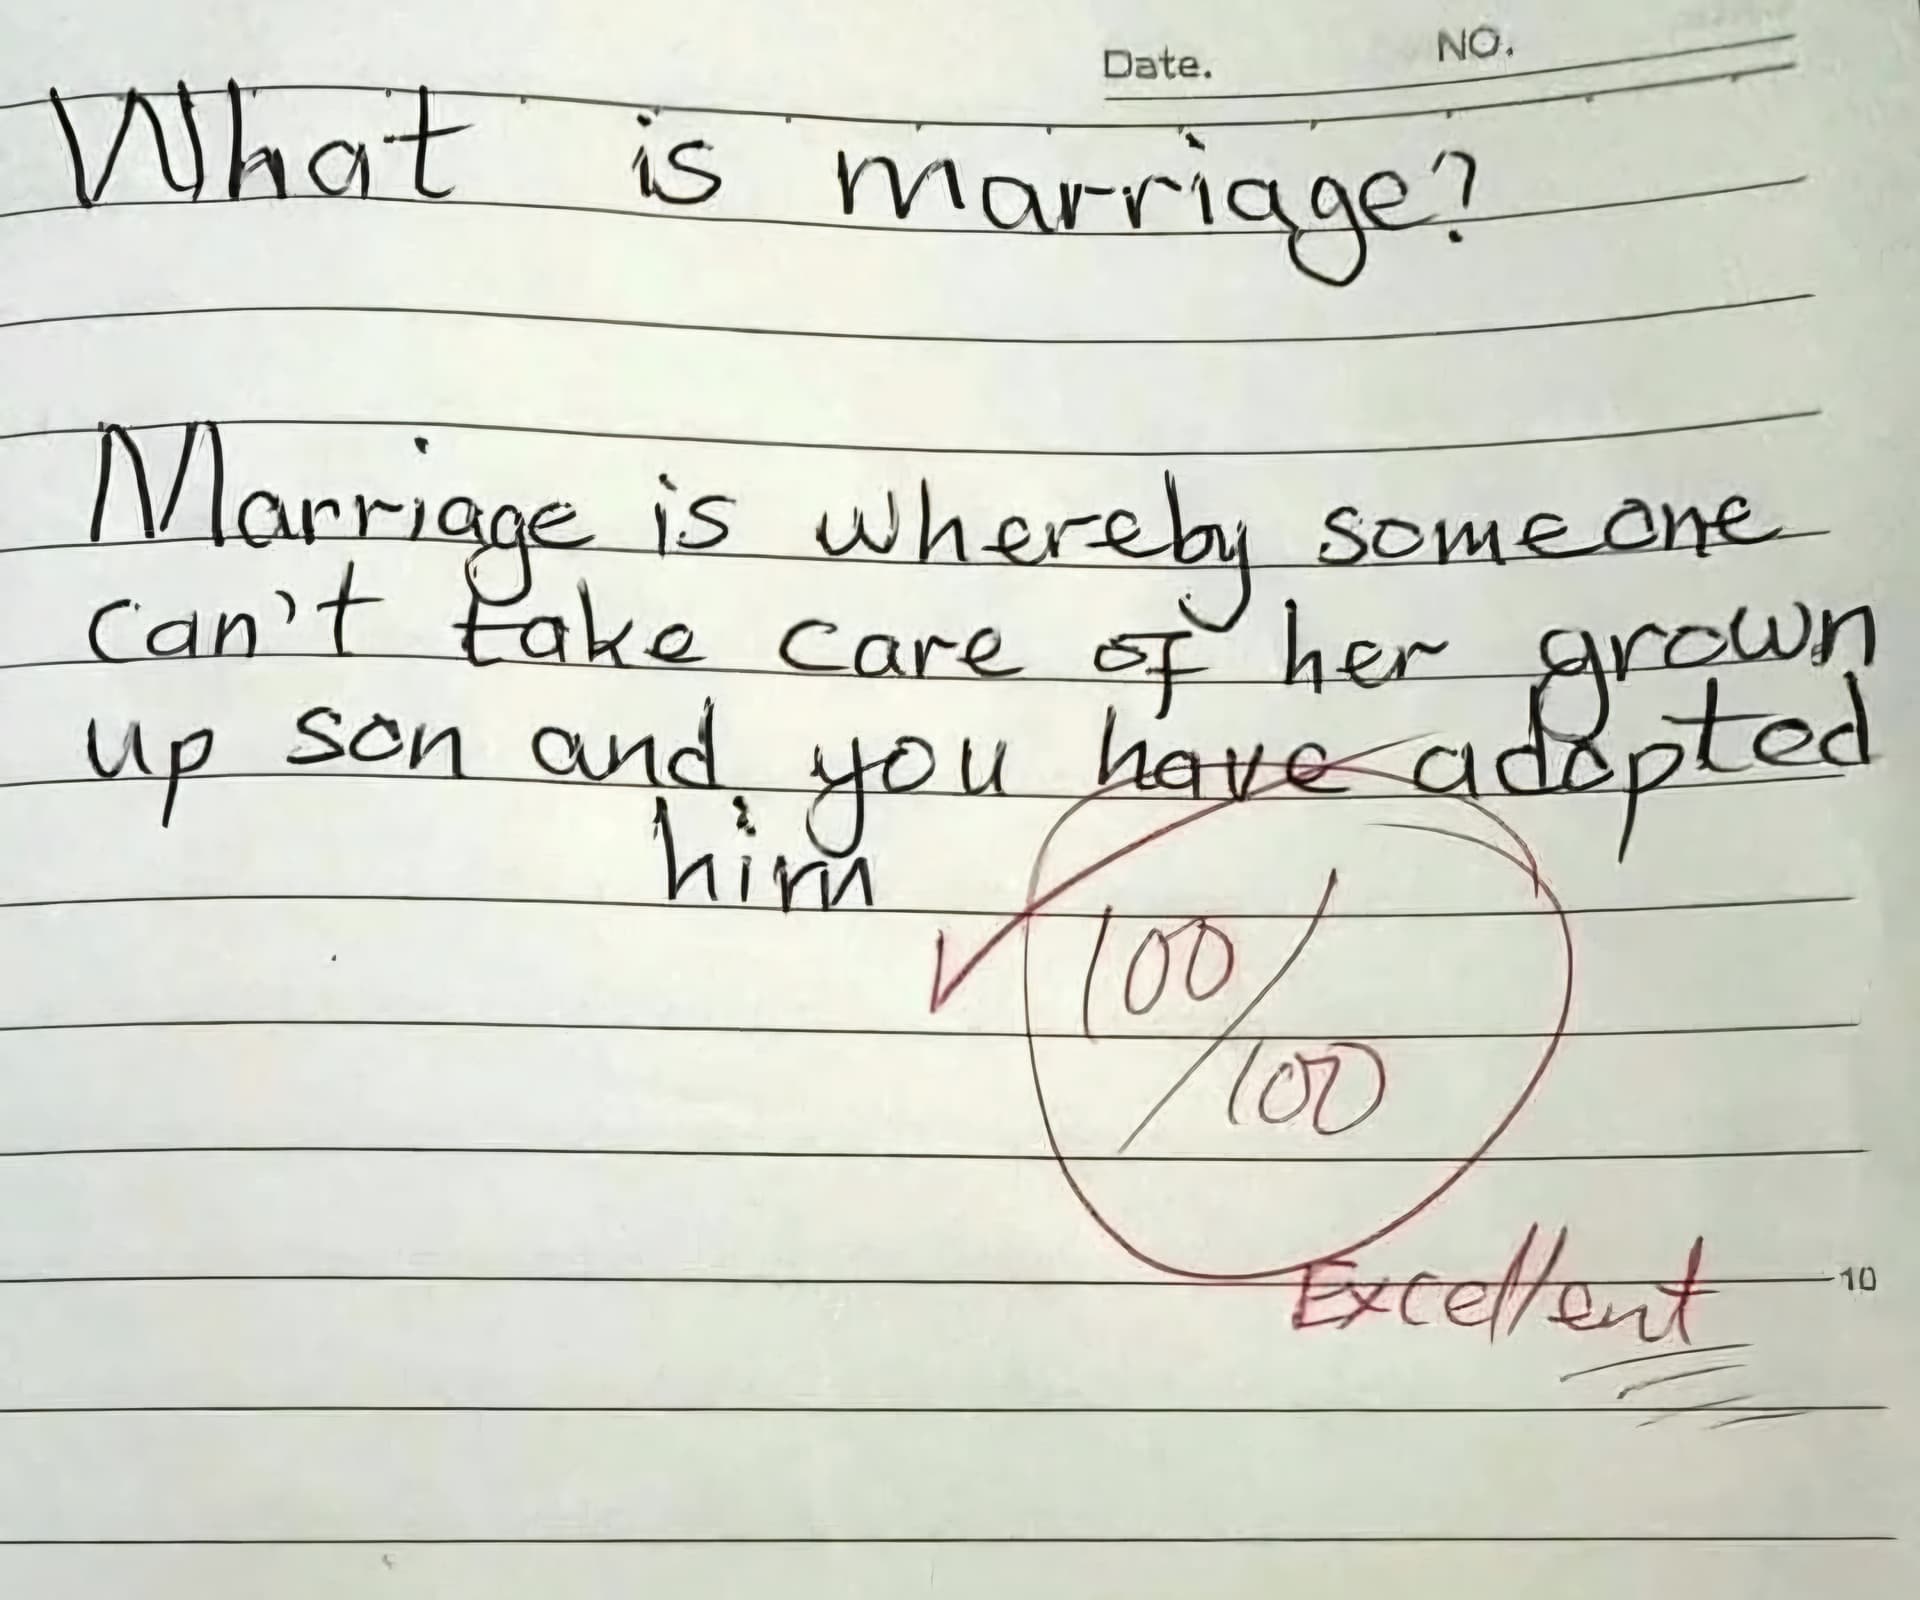 Date. NO.
What is marriage?
Marriage is whereby someone
can't take care of her grown
up son and you have adopted
him
100/100
Excellent
10